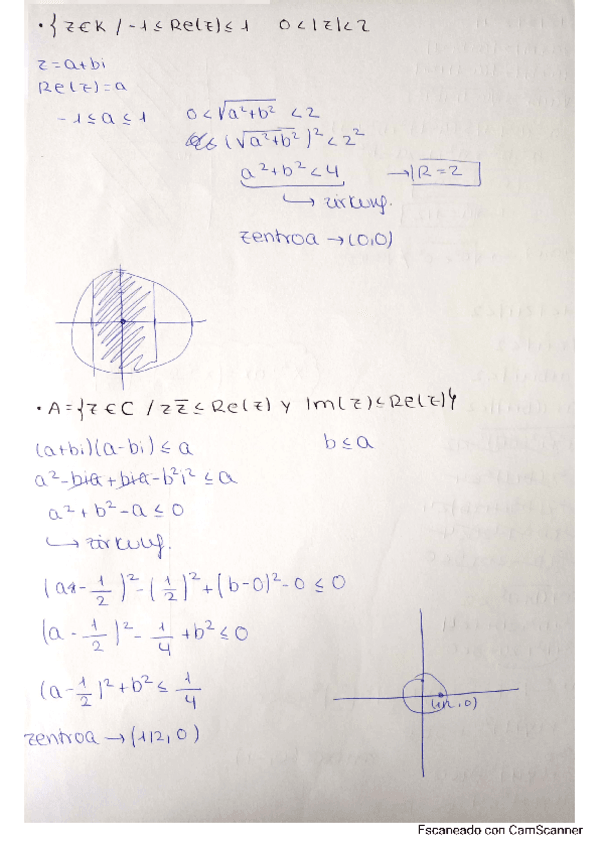 • { z ∈ K / -1 ≤ Re(z) ≤ 1 0 < |z| < 2
z = a+bi
Re(z) = a
-1 ≤ a ≤ 1 0 < √(a²+b²) < 2
(√(a²+b²))² < 2²
a²+b² < 4 → R = 2
↳ zirkunf.
zentroa → (0,0)
• A = { z ∈ C / z z̅ ≤ Re(z) y Im(z) ≤ Re(z) }
(a+bi)(a-bi) ≤ a b ≤ a
a² - bia + bia - b²i² ≤ a
a² + b² - a ≤ 0
↳ zirkunf.
(a - 1/2)² - (1/2)² + (b-0)² - 0 ≤ 0
(a - 1/2)² - 1/4 + b² ≤ 0
(a - 1/2)² + b² ≤ 1/4
(1/2, 0)
zentroa → (1/2, 0)
Escaneado con CamScanner